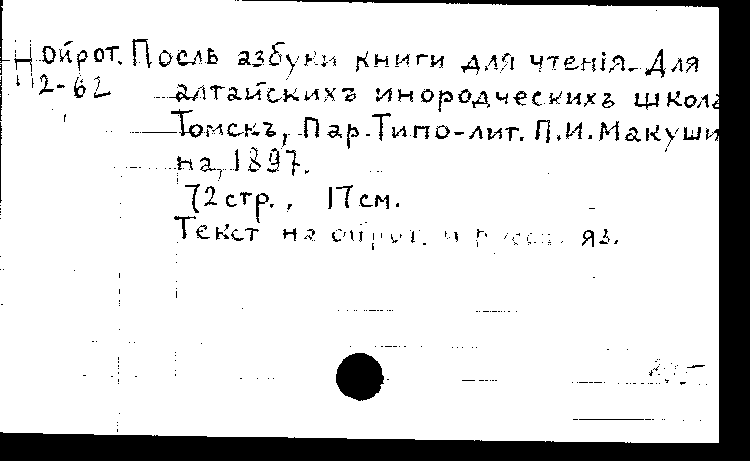 Нойрот. Послѣ азбуки книги для чтенія. Для
2-62 алтайскихъ инородческихъ школъ
Томскъ, Пар.Типо-лит. П.И.Макуши
на, 1897.
72 стр., 17 см.
Текст на ойрот. и русск. яз.